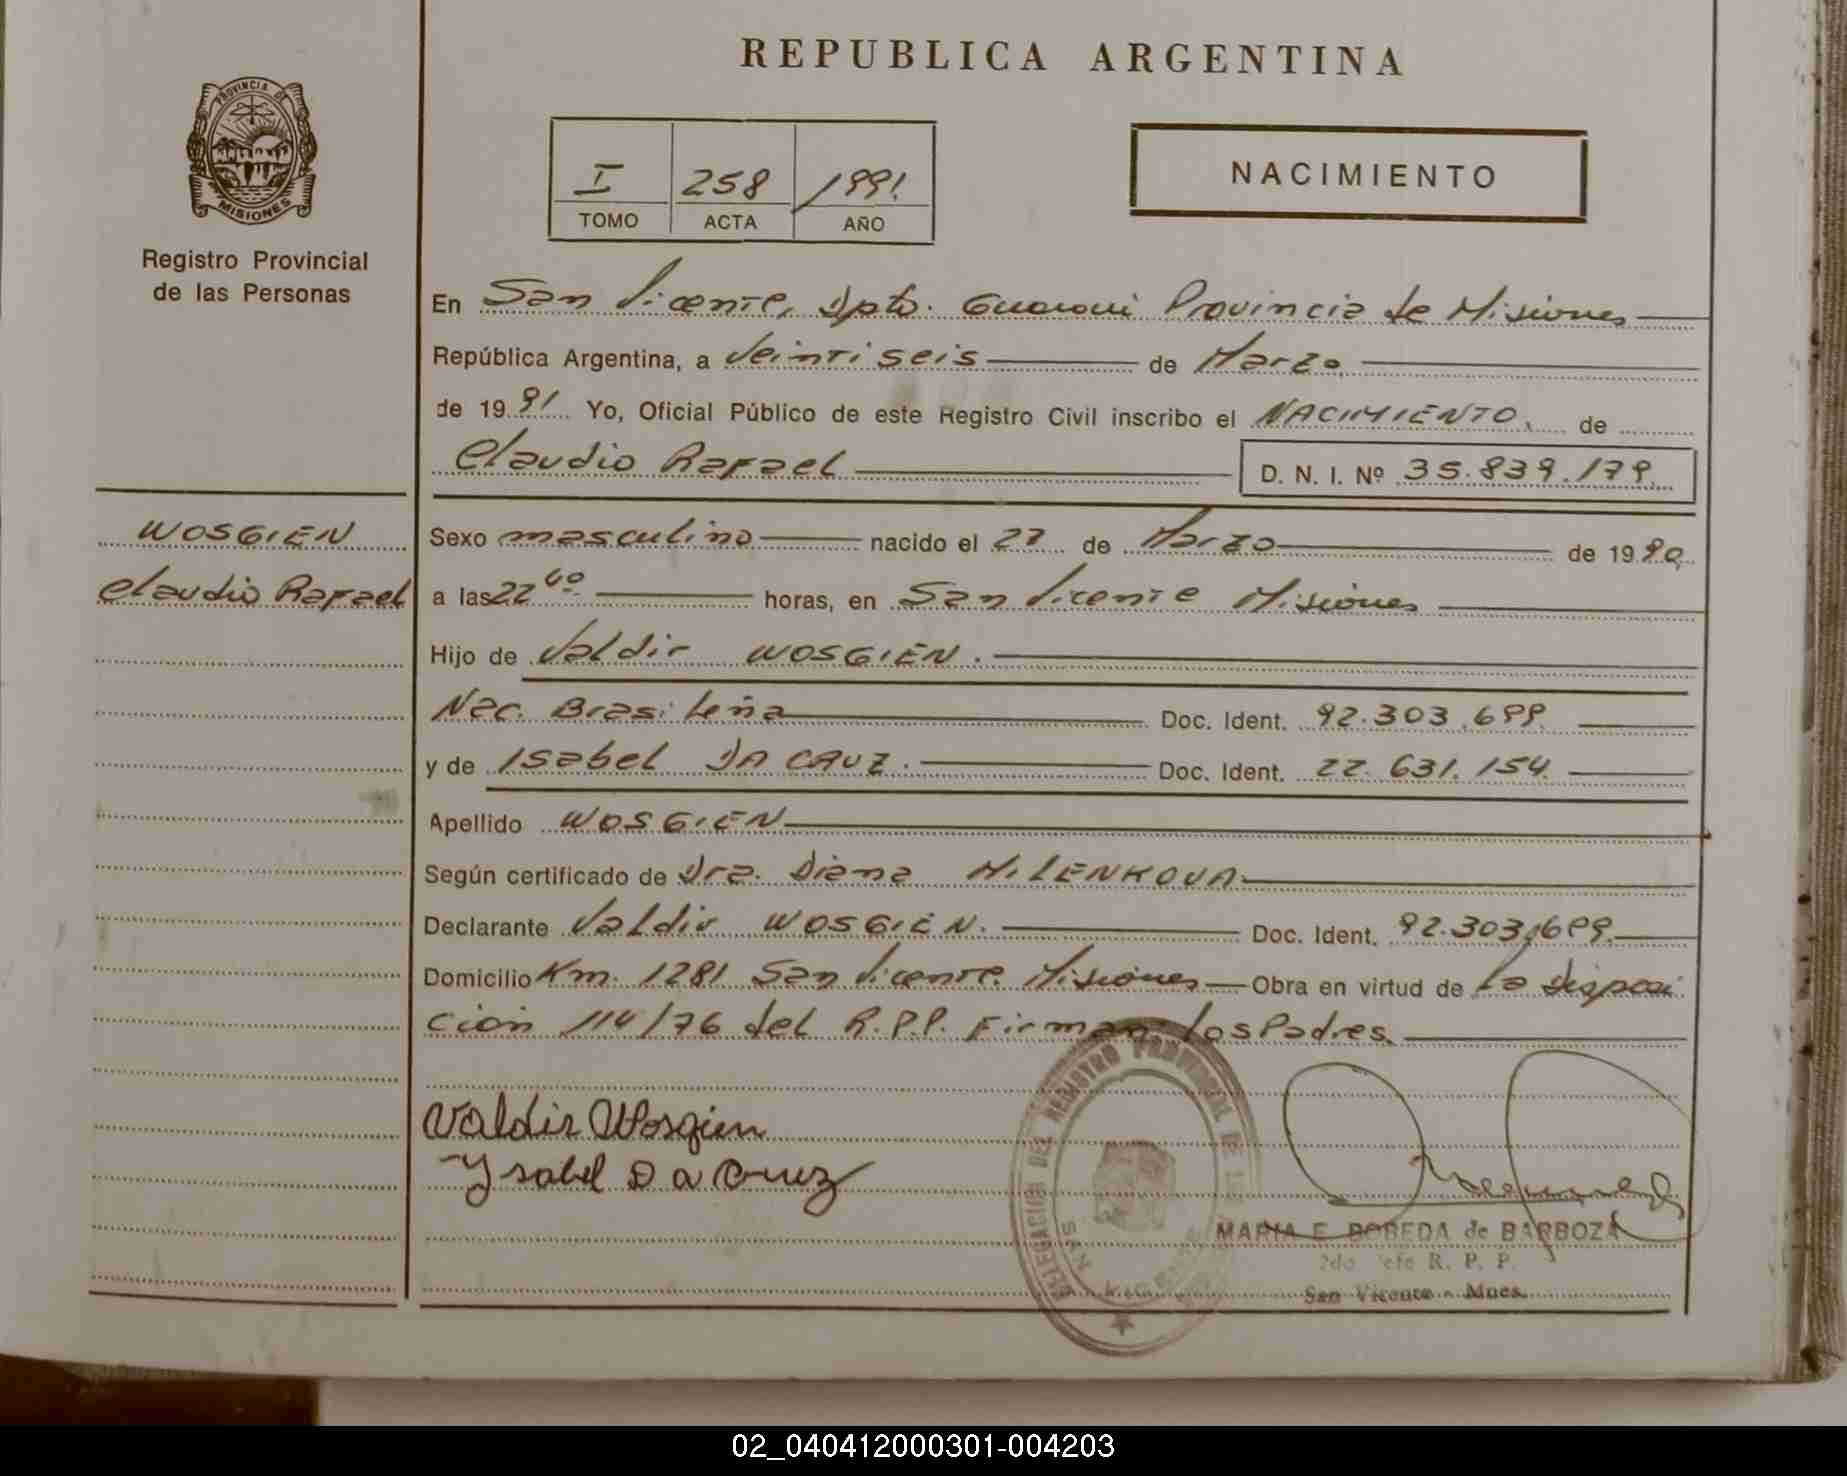 REPUBLICA ARGENTINA
PROVINCIA DE
MISIONES
Registro Provincial
de las Personas
I 258 1991
TOMO ACTA AÑO
NACIMIENTO
En San Vicente, Dpto. Guarani Provincia de Misiones
República Argentina, a Veintiseis de Marzo
de 1991 Yo, Oficial Público de este Registro Civil inscribo el NACIMIENTO, de
Claudio Rafael D. N. I. Nº 35.839.179.
WOSGIEN
Claudio Rafael
Sexo masculino nacido el de Marzo de 19
a las 22 horas, en San Vicente Misiones
Hijo de Valdir WOSGIEN.
Nac. Brasileña Doc. Ident. 92.303.699.
y de Isabel DA CRUZ. Doc. Ident. 22.631.154.
Apellido WOSGIEN
Según certificado de Dra. Diana MILENKOVA
Declarante Valdir WOSGIEN. Doc. Ident. 92.303.699.
Domicilio Km. 1281 San Vicente. Misiones Obra en virtud de la Disposi
ción 114/76 del R.P.P. Firman los Padres.
Valdir Wosgien
Ysabel Da Cruz
DELEGACION DEL REGISTRO PROVINCIAL DE
SAN VICENTE
MARIA E. BOBEDA de BARBOZA
2do Jefe R. P. P.
San Vicente - Mnes.
02_040412000301-004203